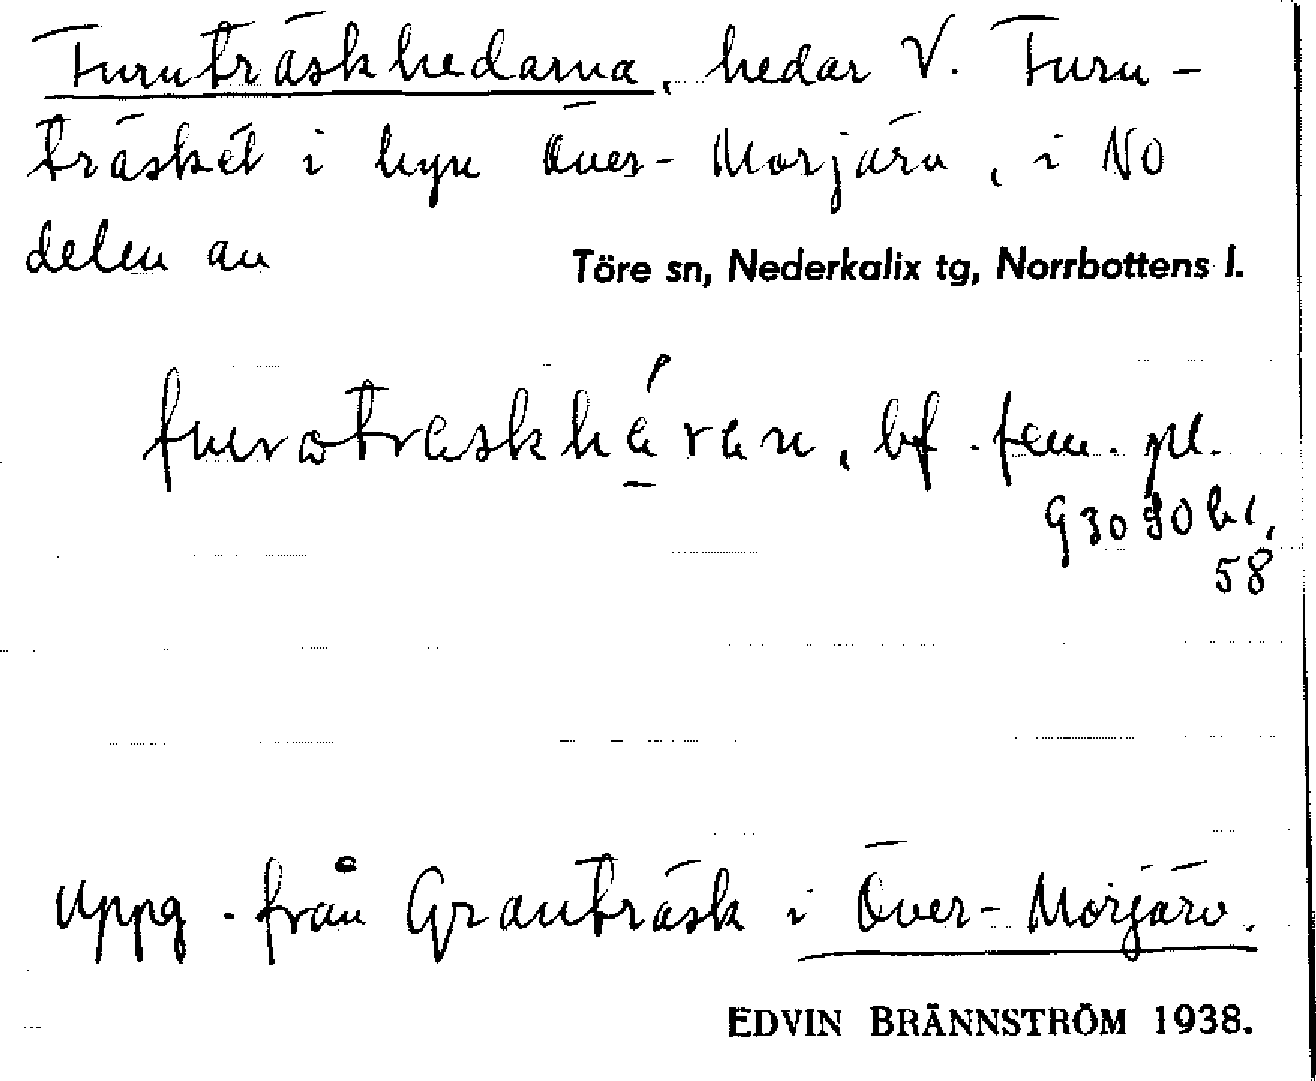 Furuträskhedarna, hedar V. Furu-
träsket i byn Över-Morjärv, i NO
delen av Töre sn, Nederkalix tg, Norrbottens l.
bf. fem. pl.
930 90 bl,
58
Uppg. från Granträsk i Över-Morjärv.
EDVIN BRÄNNSTRÖM 1938.